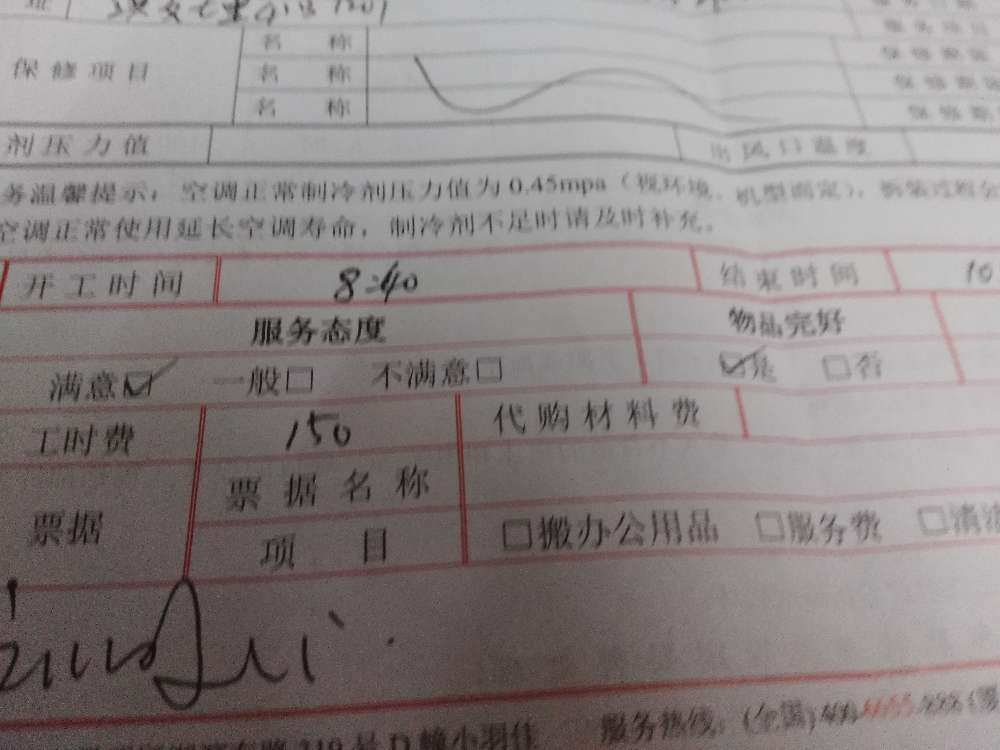 保修项目
名 称
名 称 保修期限
名 称 保修期
剂压力值 出风口温度
务温馨提示：空调正常制冷剂压力值为0.45mpa（视环境、机型而定），拆装过程
空调正常使用延长空调寿命，制冷剂不足时请及时补充。
开工时间 8:40 结束时间 10
服务态度 物品完好
满意☑ 一般□ 不满意□ ☑是 □否
工时费 150 代购材料费
票据 票据名称
项 目 □搬办公用品 □服务费 □清
319号D幢小羽佳 服务热线：(全国)